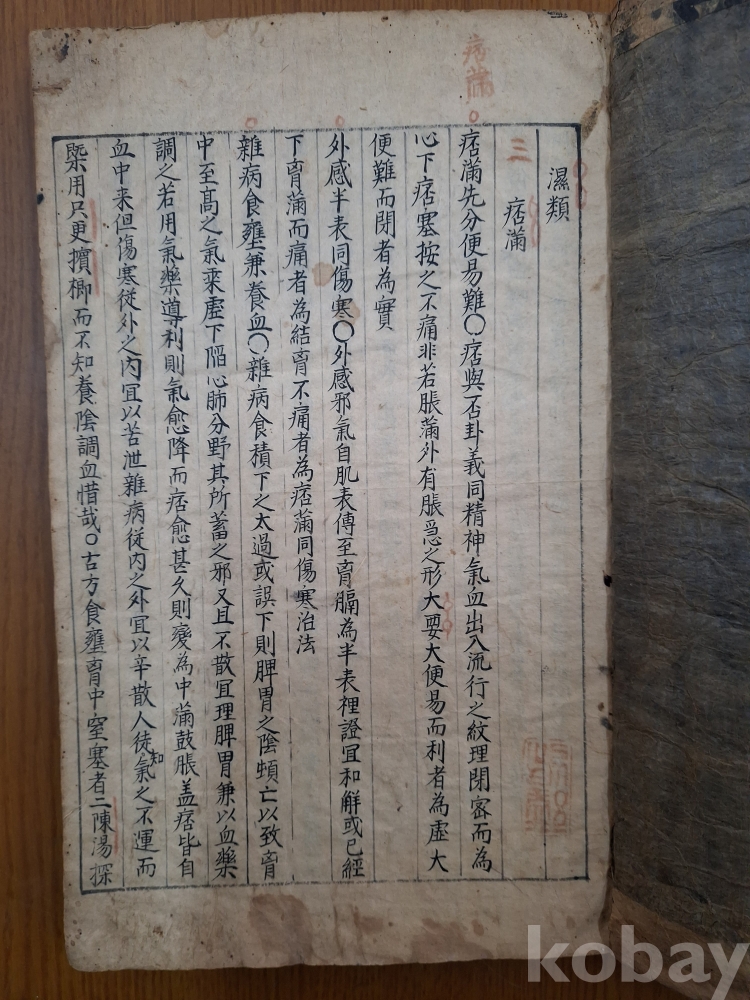 痞滿
濕類
三 痞滿
痞滿先分便易難〇痞與否卦義同精神氣血出入流行之紋理閉密而為
心下痞塞按之不痛非若脹滿外有脹急之形大要大便易而利者為虛大
便難而閉者為實
外感半表同傷寒〇外感邪氣自肌表傳至胷膈為半表裡證宜和解或已經
下胷滿而痛者為結胷不痛者為痞滿同傷寒治法
雜病食壅兼養血〇雜病食積下之太過或誤下則脾胃之陰頓亡以致胷
中至髙之氣乘虛下陷心肺分野其所蓄之邪又且不散冝理脾胃兼以血藥
調之若用氣藥導利則氣愈降而痞愈甚久則變為中滿鼓脹盖痞皆自
血中来但傷寒從外之內冝以苦泄雜病從内之外冝以辛散人徒知氣之不運而
槩用只更擯榔而不知養陰調血惜哉〇古方食壅胷中窒塞者二陳湯探
kobay